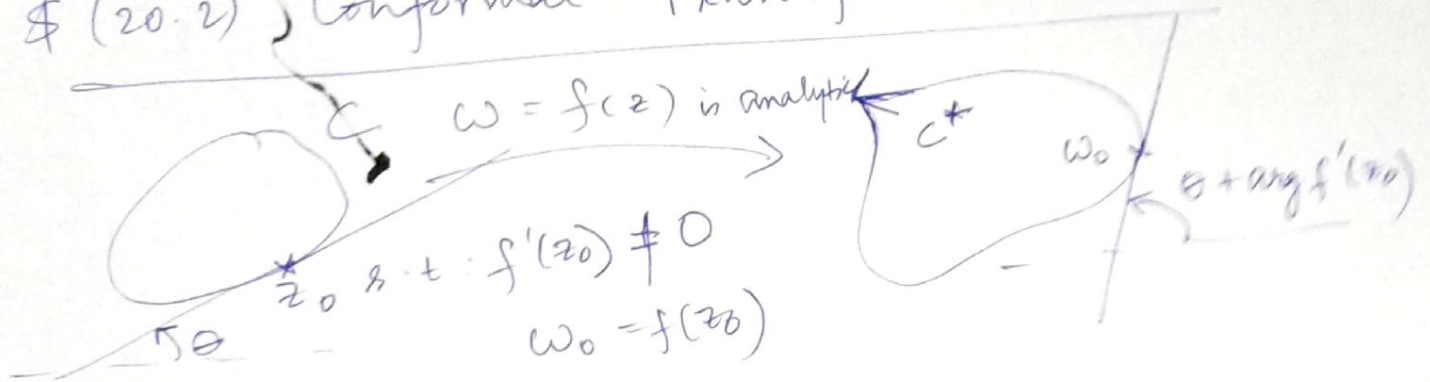 § (20.2) Conformal
C
ω = f(z) is analytic
C*
ω₀
θ + arg f'(z₀)
z₀ s.t. f'(z₀) ≠ 0
θ
ω₀ = f(z₀)